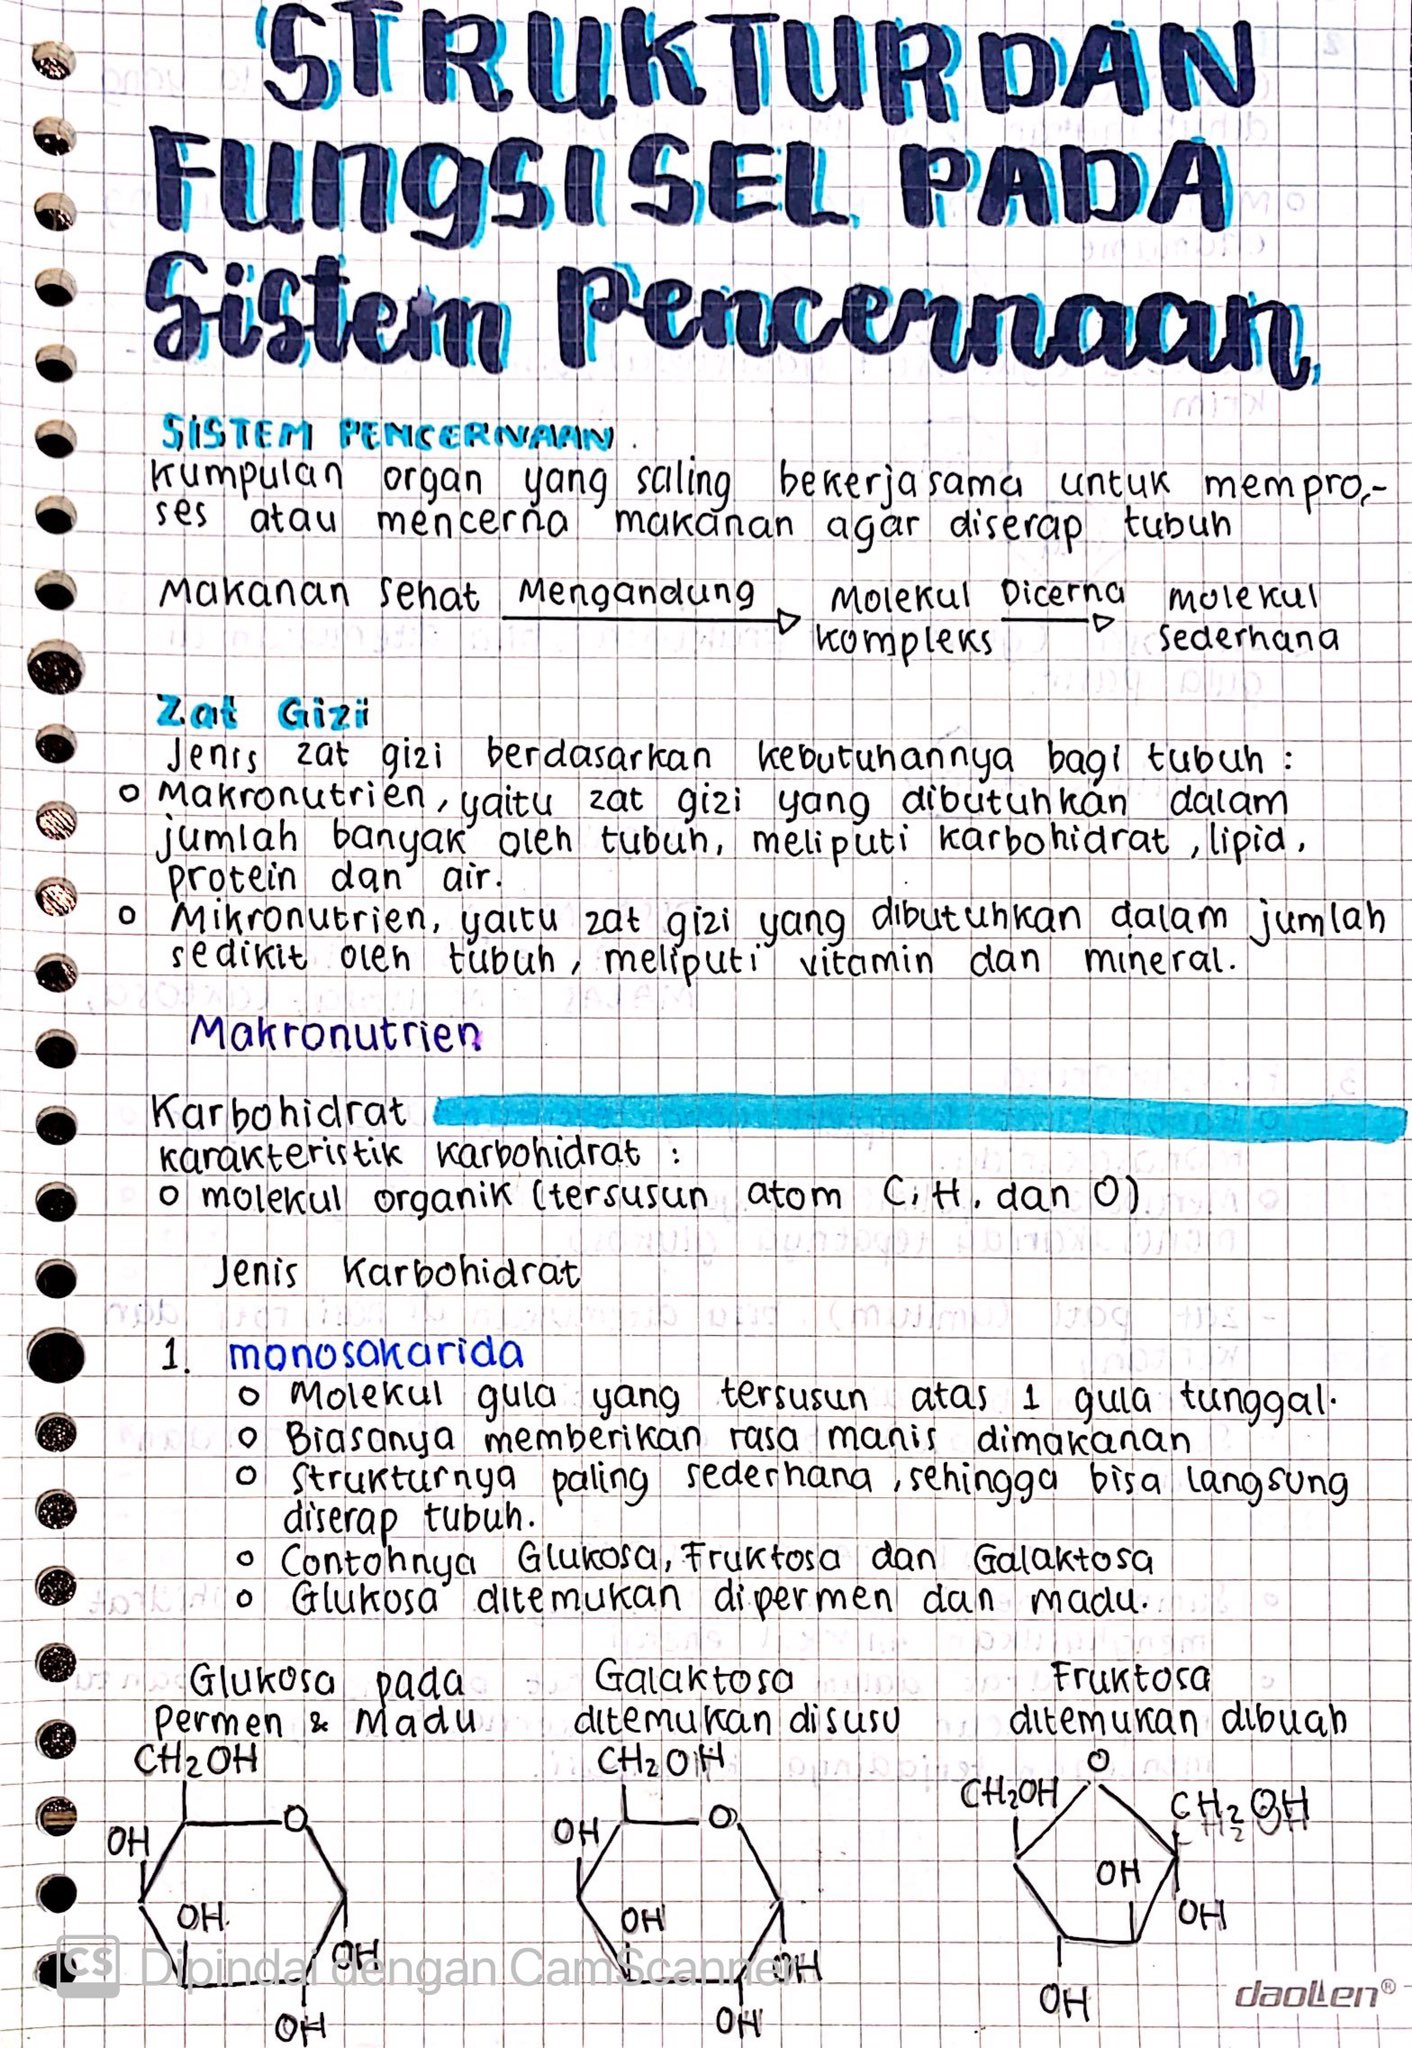 STRUKTUR DAN
FUNGSI SEL PADA
Sistem Pencernaan
SISTEM PENCERNAAN.
Kumpulan organ yang saling bekerjasama untuk mempro-
ses atau mencerna makanan agar diserap tubuh
Makanan Sehat Mengandung Molekul Dicerna molekul
kompleks sederhana
Zat Gizi
Jenis zat gizi berdasarkan kebutuhannya bagi tubuh :
o Makronutrien, yaitu zat gizi yang dibutuhkan dalam
jumlah banyak oleh tubuh, meliputi karbohidrat, lipid,
protein dan air.
o Mikronutrien, yaitu zat gizi yang dibutuhkan dalam jumlah
sedikit oleh tubuh, meliputi vitamin dan mineral.
Makronutrien
Karbohidrat
karakteristik karbohidrat :
o molekul organik (tersusun atom C, H, dan O)
Jenis Karbohidrat
1. monosakarida
o Molekul gula yang tersusun atas 1 gula tunggal.
o Biasanya memberikan rasa manis dimakanan
o Strukturnya paling sederhana, sehingga bisa langsung
diserap tubuh.
o Contohnya Glukosa, Fruktosa dan Galaktosa
o Glukosa ditemukan dipermen dan madu.
Glukosa pada Galaktosa Fruktosa
Permen & Madu ditemukan disusu ditemukan dibuah
CH2OH CH2OH O
CH2OH CH2OH
O O
OH OH
OH
OH OH OH
OH OH
OH OH OH
CS Dipindai dengan CamScanner
daollen®